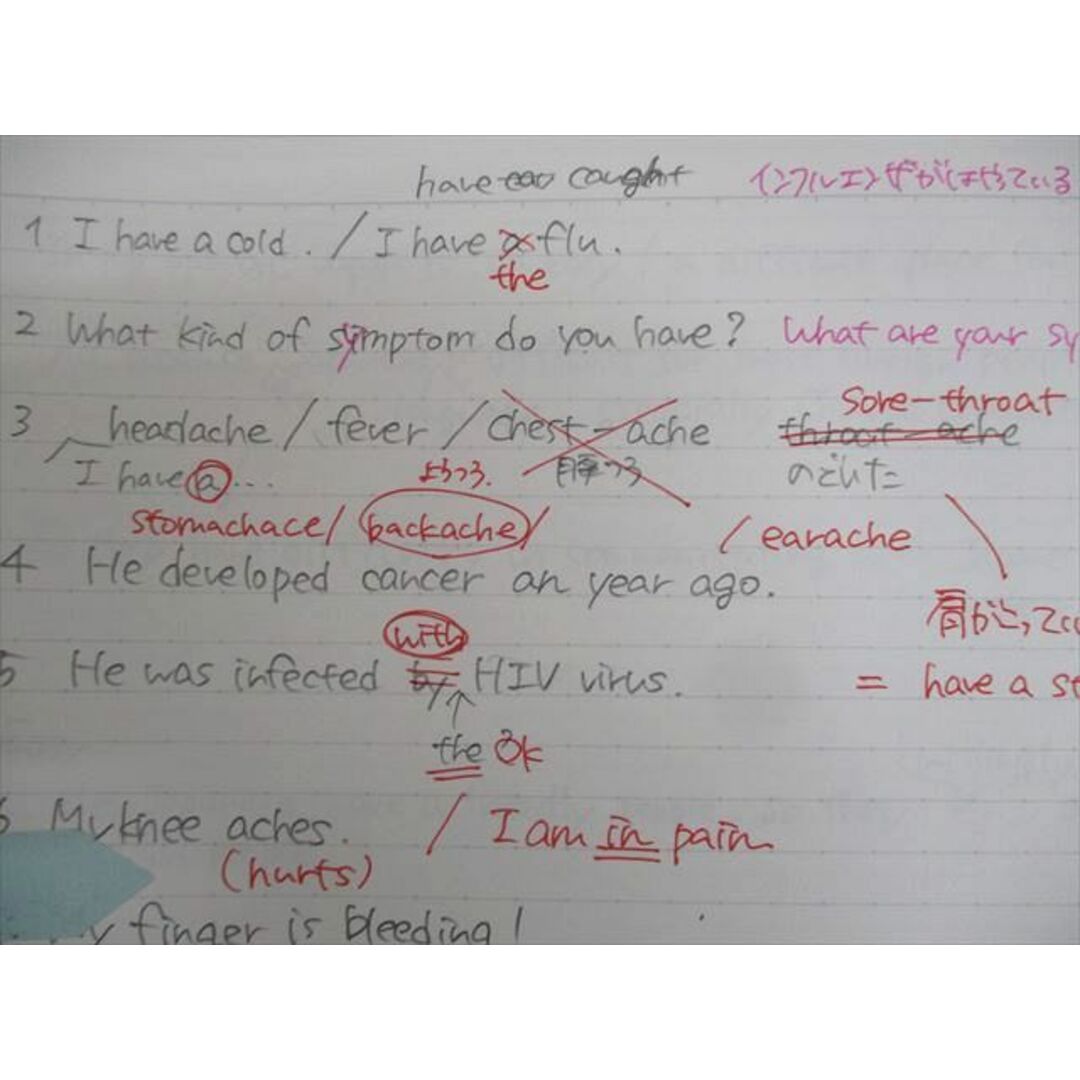 have caught インフルエンザがはやっている
1 I have a cold. / I have flu.
the
2 What kind of symptom do you have? What are your sy
sore-throat
3 headache / fever / chest-ache throat-ache
I have a ... ようつう. のどいた
stomachace / backache / / earache
4 He developed cancer an year ago.
with 肩がこってい
5 He was infected by HIV virus. = have a st
the OK
6 My knee aches. / I am in pain
(hurts)
my finger is bleeding!